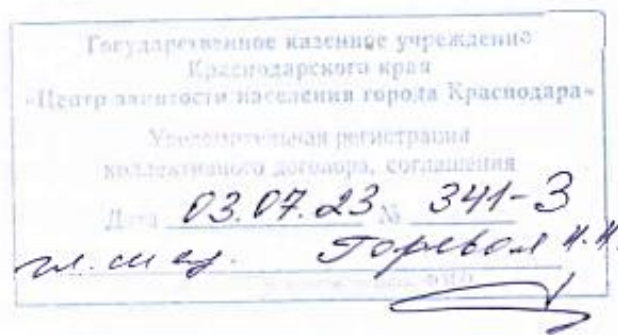 Государственное казенное учреждение
Краснодарского края
«Центр занятости населения города Краснодара»
Уведомительная регистрация
коллективного договора, соглашения
Дата 03.07.23 № 341-3
гл. спец.